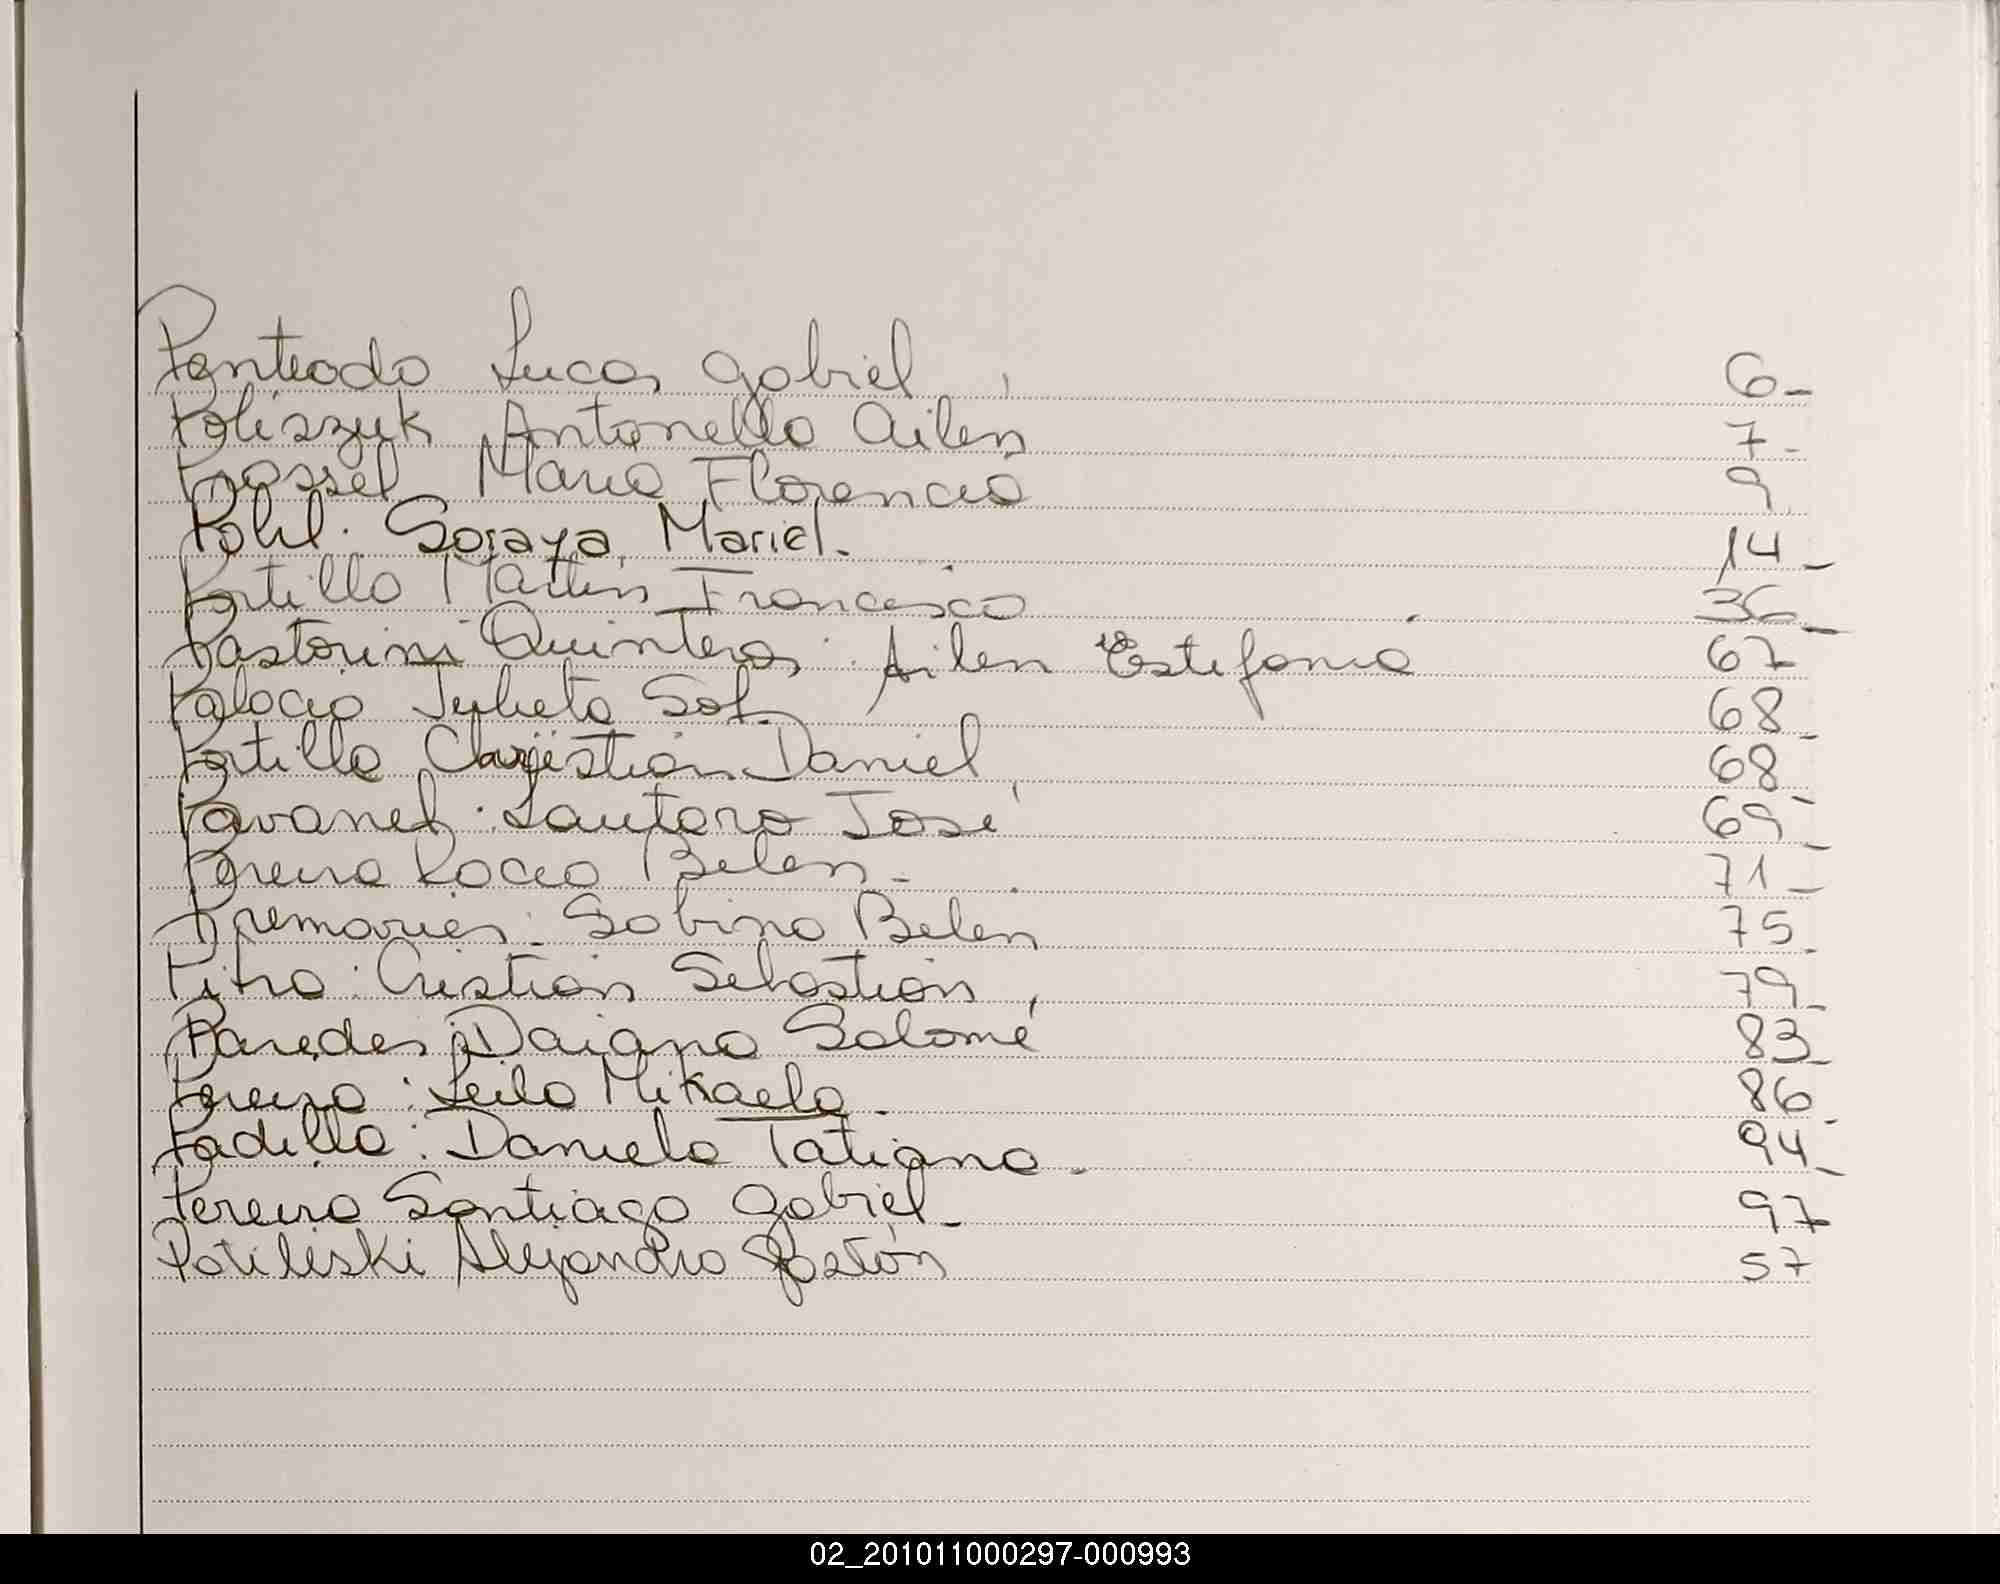 Penteado Lucas Gabriel, 6-
Poliszuk Antonella Ailén 7-
Prassel María Florencia 9
Pohl. Soraya Mariel. 14-
Portillo Martín Francisco 36-
Pastorini Quinteros. Ailen Estefania 67
Palacio Julieta Sol. 68-
Portillo Christian Daniel, 68-
Pavanel. Lautaro José 69-
Pereira Rocio Belen- 71-
Premaries: Sabina Belén 75-
Pitra: Cristian Sebastian, 79-
Paredes: Daiana Salomé 83-
Pereira: Leila Mikaela- 86-
Padilla: Daniela Tatiana- 94-
Pereira Santiago Gabriel- 97
Potiliski Alejandro Gastón 57
02_201011000297-000993